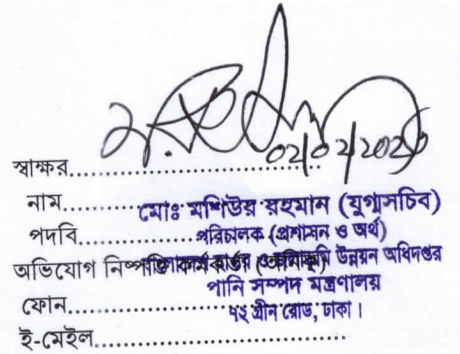 ০২/০২/২০২৬
স্বাক্ষর..............................
নাম..............................
মোঃ মশিউর রহমান (যুগ্মসচিব)
পদবি..............................
পরিচালক (প্রশাসন ও অর্থ)
অভিযোগ নিষ্পত্তি কর্মকর্তা (অনিক)
উন্নয়ন অধিদপ্তর
পানি সম্পদ মন্ত্রণালয়
ফোন..............................
৭২ গ্রীন রোড, ঢাকা।
ই-মেইল..............................